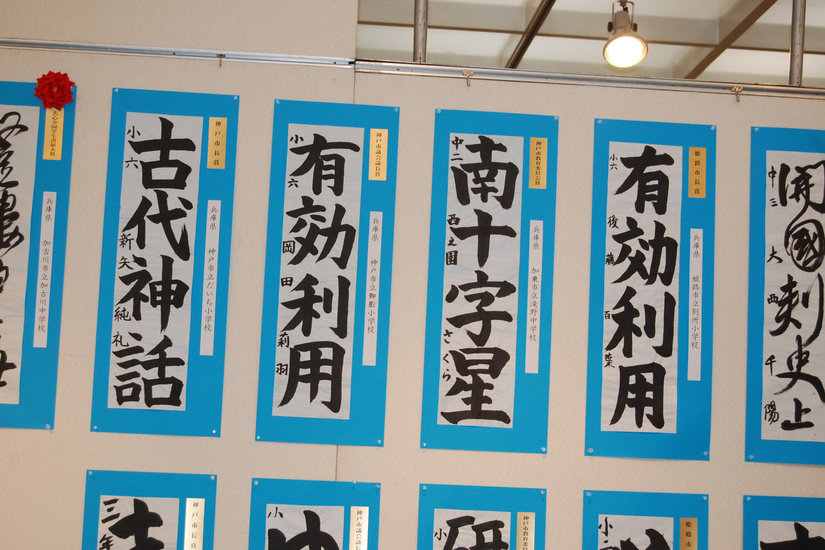 兵庫県 加古川市立加古川中学校
古代神話
小六 新矢純礼
神戸市長賞
兵庫県 神戸市立だいち小学校
有効利用
小六 岡田莉羽
神戸市議会議長賞
兵庫県 神戸市立御影小学校
南十字星
中二 西之園さくら
神戸市教育委員会賞
兵庫県 加東市立滝野中学校
有効利用
小六 後藤百葉
姫路市長賞
兵庫県 姫路市立別所小学校
開國刺史上
中三 大西千陽
三年
神戸市長賞
小
神戸市議会議長賞
研
小
神戸市教育委員会賞
小
姫路市